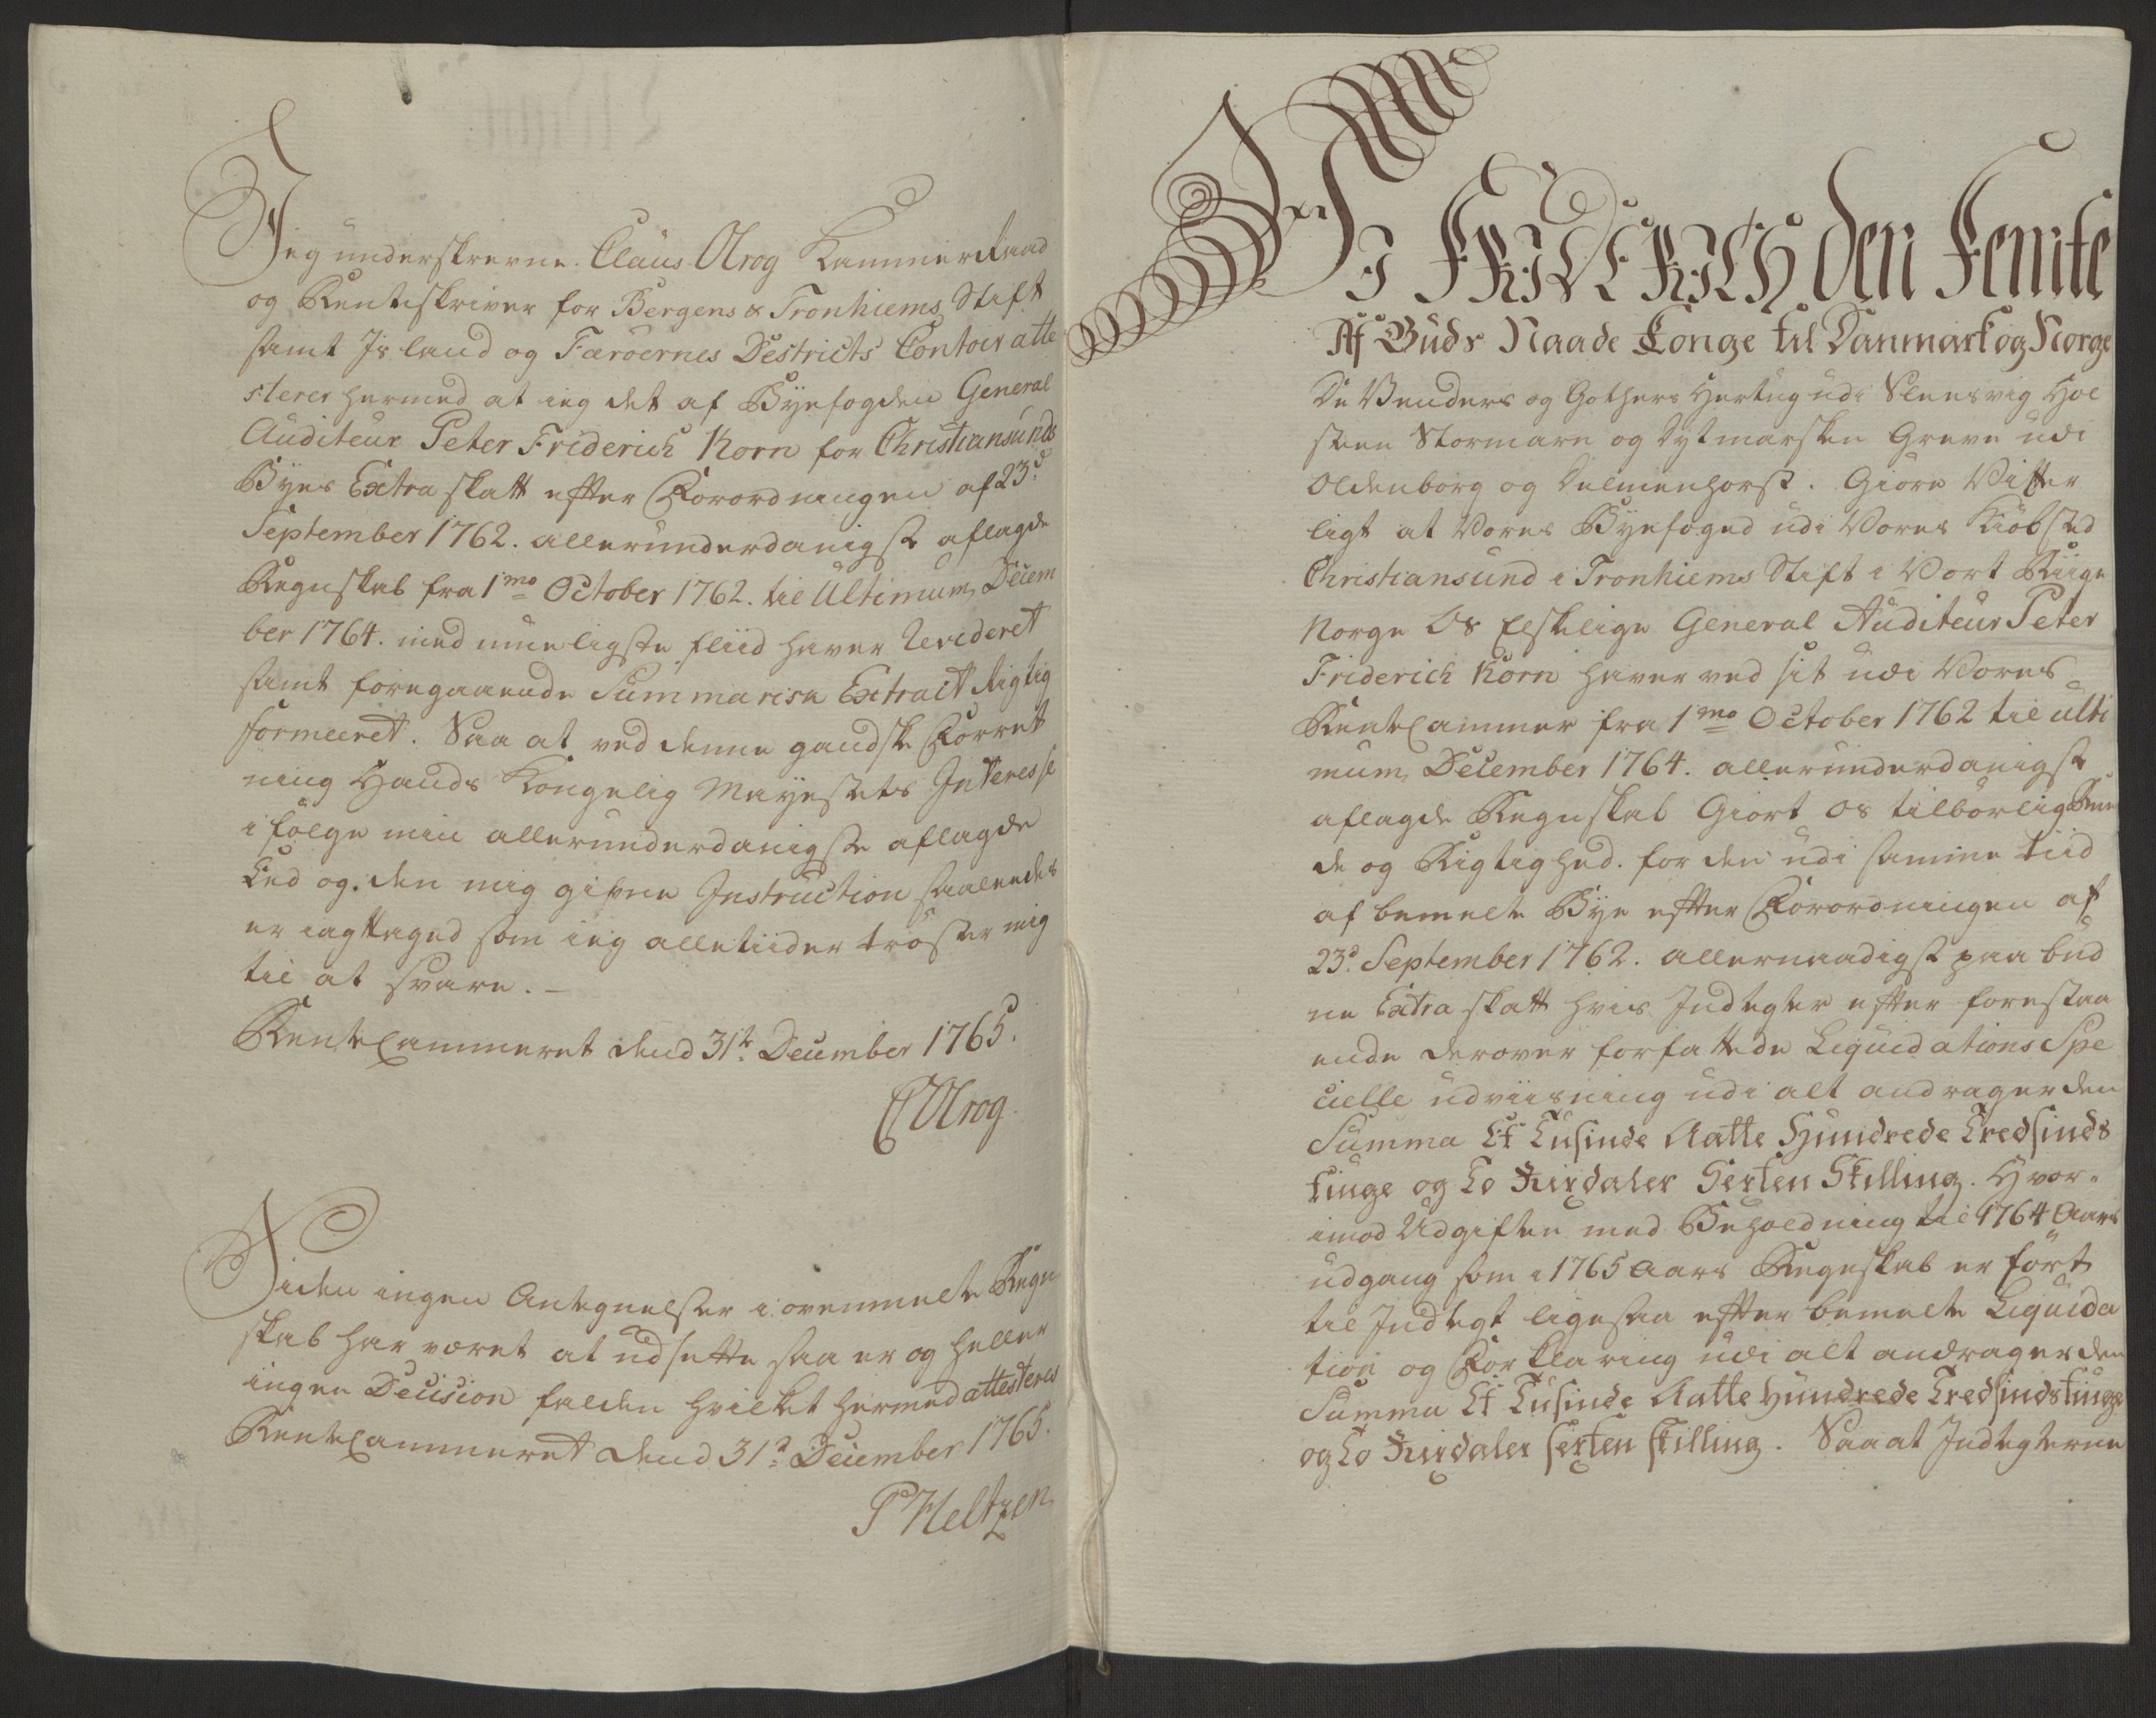 Jeg underskrevne Claus Olrog KammerRaad
og Renteskriver for Bergens & Tronhiems Stift
samt Island og Færøernes Destricts Contoir atte
sterer hermed at ieg det af Byefogden General
Auditeur Peter Friderich Korn for Christiansunds
Byes Extra skatt efter Forordningen af 23d
September 1762. allerunderdanigst aflagde
Regnskab fra 1mo October 1762. til Ultimum Decem
ber 1764. med mueligste fliid haver Revideret
samt foregaaende Summariske Extract Rigtig
formeeret. Saa at ved denne gandske Forret
ning Hands Kongelig Mayestets Interesse
i følge min allerunderdanigste aflagde
Eed og den mig givne Instruction saaledes
er iagttaged som ieg alletiider trøster mig
til at svare. -
RenteCammeret dend 31te December 1765.
COlrog
Siden ingen Antegnelser i ovenmelte Regn
skab har været at udsette saa er og heller
ingen Decision falden hvilket hermed attesteres
RenteCammeret dend 31te December 1765.
P Heltzen
Wi FRIDERICH den Femte
Af Guds Naade Konge til Danmark og Norge
De Venders og Gothers Hertug udi Slesvig Hol
steen Stormarn og Dytmarsken Greve udi
Oldenborg og Delmenhorst. Giøre Vitter
ligt at Vores Byefoged udi Vores Kiøbsted
Christiansund i Tronhiems Stift i Vort Riige
Norge Os Elskelige General Auditeur Peter
Friderich Korn haver ved sit udi Vores
RenteCammer fra 1mo October 1762 til ulti
mum December 1764. allerunderdanigst
aflagde Regnskab Giort os tilbørlig Ree
de og Rigtighed. for den udi samme tiid
af bemelte Bye efter Forordningen af
23d September 1762. allernaadigst paabud
ne Extra skatt hvis Indtegter efter forestaa
ende derover forfattede Liquidations Spe
cielle udviisning udi alt andrager den
Summa Et Tusinde Aatte Hundrede Tredsinds
tiuge og To Rixdaler Sexten Skilling. Hvor-
imod Udgiften med Beholdning til 1764 Aars
udgang som i 1765 Aars Regnskab er ført
til Indtegt ligesaa efter bemelte Liquida
tion og Forklaring udi alt andrager den
Summa Et Tusinde Aatte Hundrede Tredsindstiuge
og To Rixdaler Sexten Skilling. Saa at Indtegterne